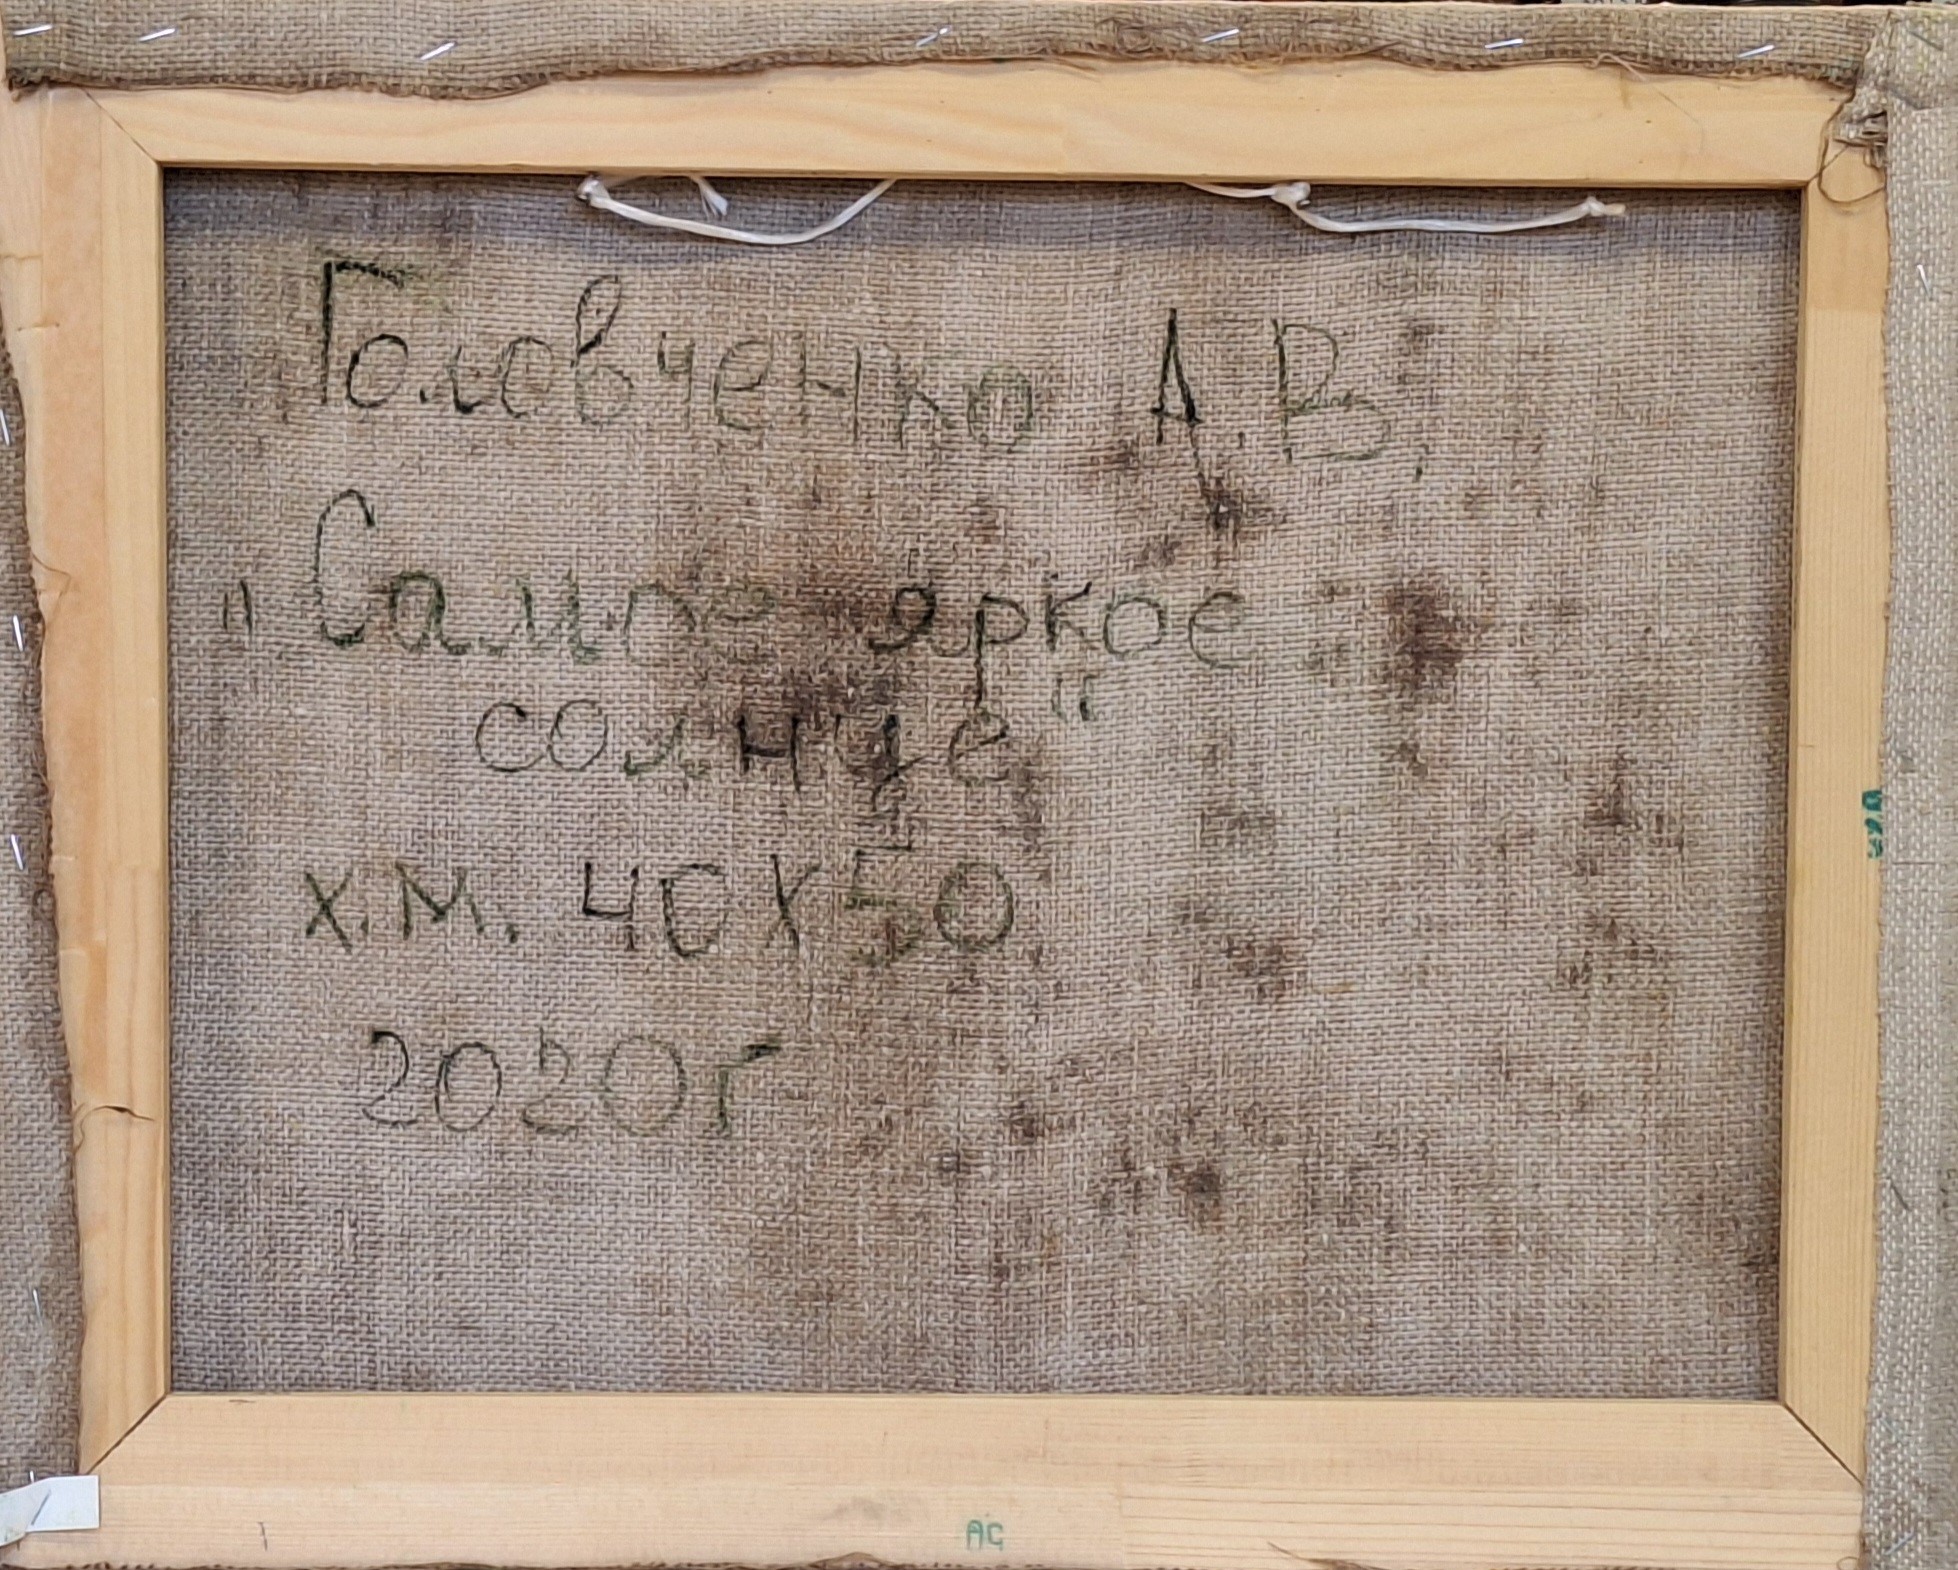 Головченко А.В,
"Самое яркое
солнце"
х.м. 40х50
2020г
AG